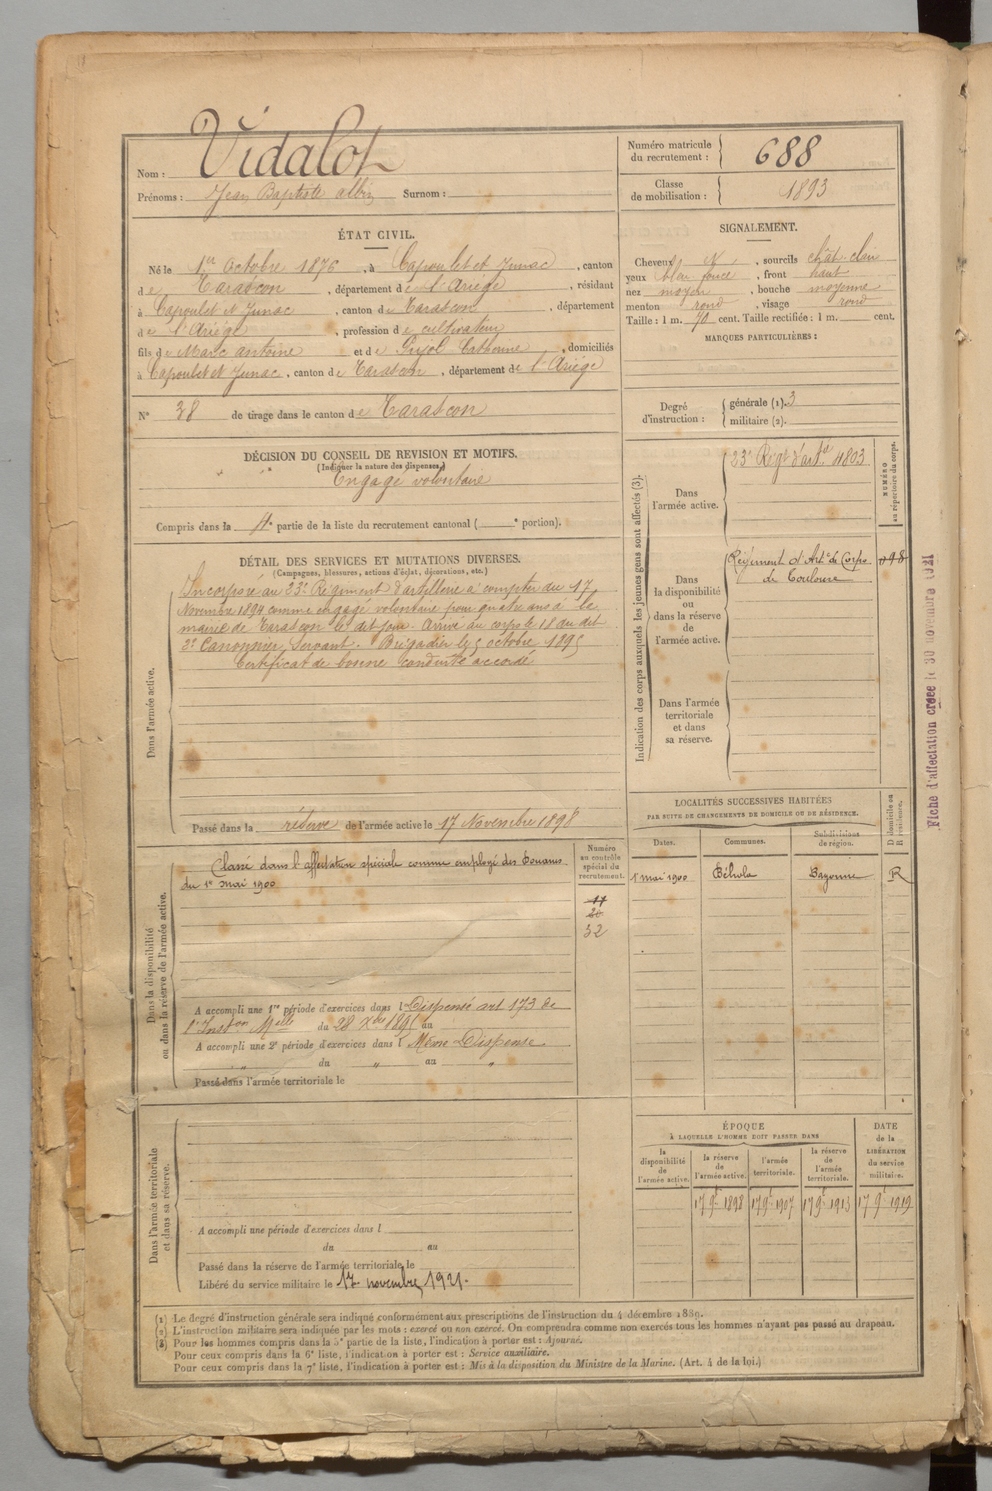 Nom : Vidalot
Prénoms : Jean Baptiste albin Surnom :
Numéro matricule du recrutement : 688
Classe de mobilisation : 1893
ÉTAT CIVIL.
Né le 1er Octobre 1876, à Capoulet et Junac, canton
de Tarascon, département de l'Ariège, résidant
à Capoulet et Junac, canton de Tarascon, département
de l'Ariège, profession de cultivateur
fils de Marc antoine et de Pujol Catherine, domiciliés
à Capoulet et Junac, canton de Tarascon, département de l'Ariège
N° 38 de tirage dans le canton de Tarascon
SIGNALEMENT.
Cheveux, sourcils chât-clair
yeux bleu foncé, front haut
nez moyen, bouche moyenne
menton rond, visage rond
Taille : 1 m. 70 cent. Taille rectifiée : 1 m. cent.
MARQUES PARTICULIÈRES :
Degré d'instruction : générale (1). 3
militaire (2).
DÉCISION DU CONSEIL DE REVISION ET MOTIFS.
(Indiquer la nature des dispenses.)
Engagé volontaire
Compris dans la 4e partie de la liste du recrutement cantonal ( e portion).
DÉTAIL DES SERVICES ET MUTATIONS DIVERSES.
(Campagnes, blessures, actions d'éclat, décorations, etc.)
Dans l'armée active.
Incorporé au 23e Régiment d'artillerie à compter du 17
Novembre 1894 comme engagé volontaire pour quatre ans à la
mairie de Tarascon le dit jour. Arrivé au corps le 18 du dit
2e Canonnier Servant. Brigadier le 5 octobre 1895
Certificat de bonne conduite accordé
Passé dans la réserve de l'armée active le 17 Novembre 1898
Indication des corps auxquels les jeunes gens sont affectés (3).
NUMÉRO au répertoire du corps.
Dans l'armée active.
23e Régt d'artie 1803
Dans la disponibilité ou dans la réserve de l'armée active.
Régiment d'Artie de Corps
de Toulouse
Dans l'armée territoriale et dans sa réserve.
Fiche d'affectation créée le 30 novembre 1921
LOCALITÉS SUCCESSIVES HABITÉES
PAR SUITE DE CHANGEMENTS DE DOMICILE OU DE RÉSIDENCE.
D domicile ou R résidence.
Dates. Communes. Subdivisions de région.
1 mai 1900 Béhola Bayonne R
Dans la disponibilité ou dans la réserve de l'armée active.
Numéro au contrôle spécial du recrutement.
Classé dans l'affectation spéciale comme employé des Douanes
du 1er mai 1900
32
A accompli une 1re période d'exercices dans l Dispensé art 173 de
l'Inston Melle du 28 Xbre 1895 au
A accompli une 2e période d'exercices dans l Même Dispense
du " au "
Passé dans l'armée territoriale le
Dans l'armée territoriale et dans sa réserve.
A accompli une période d'exercices dans l
du au
Passé dans la réserve de l'armée territoriale le
Libéré du service militaire le 17 novembre 1921.
ÉPOQUE
À LAQUELLE L'HOMME DOIT PASSER DANS
la disponibilité de l'armée active.
la réserve de l'armée active.
l'armée territoriale.
la réserve de l'armée territoriale.
DATE de la LIBÉRATION du service militaire.
17 9e 1898 17 9e 1907 17 9e 1913 17 9e 1919
(1) Le degré d'instruction générale sera indiqué conformément aux prescriptions de l'instruction du 4 décembre 1889.
(2) L'instruction militaire sera indiquée par les mots : exercé ou non exercé. On comprendra comme non exercés tous les hommes n'ayant pas passé au drapeau.
(3) Pour les hommes compris dans la 5e partie de la liste, l'indication à porter est : Ajourné.
Pour ceux compris dans la 6e liste, l'indication à porter est : Service auxiliaire.
Pour ceux compris dans la 7e liste, l'indication à porter est : Mis à la disposition du Ministre de la Marine. (Art. 4 de la loi.)